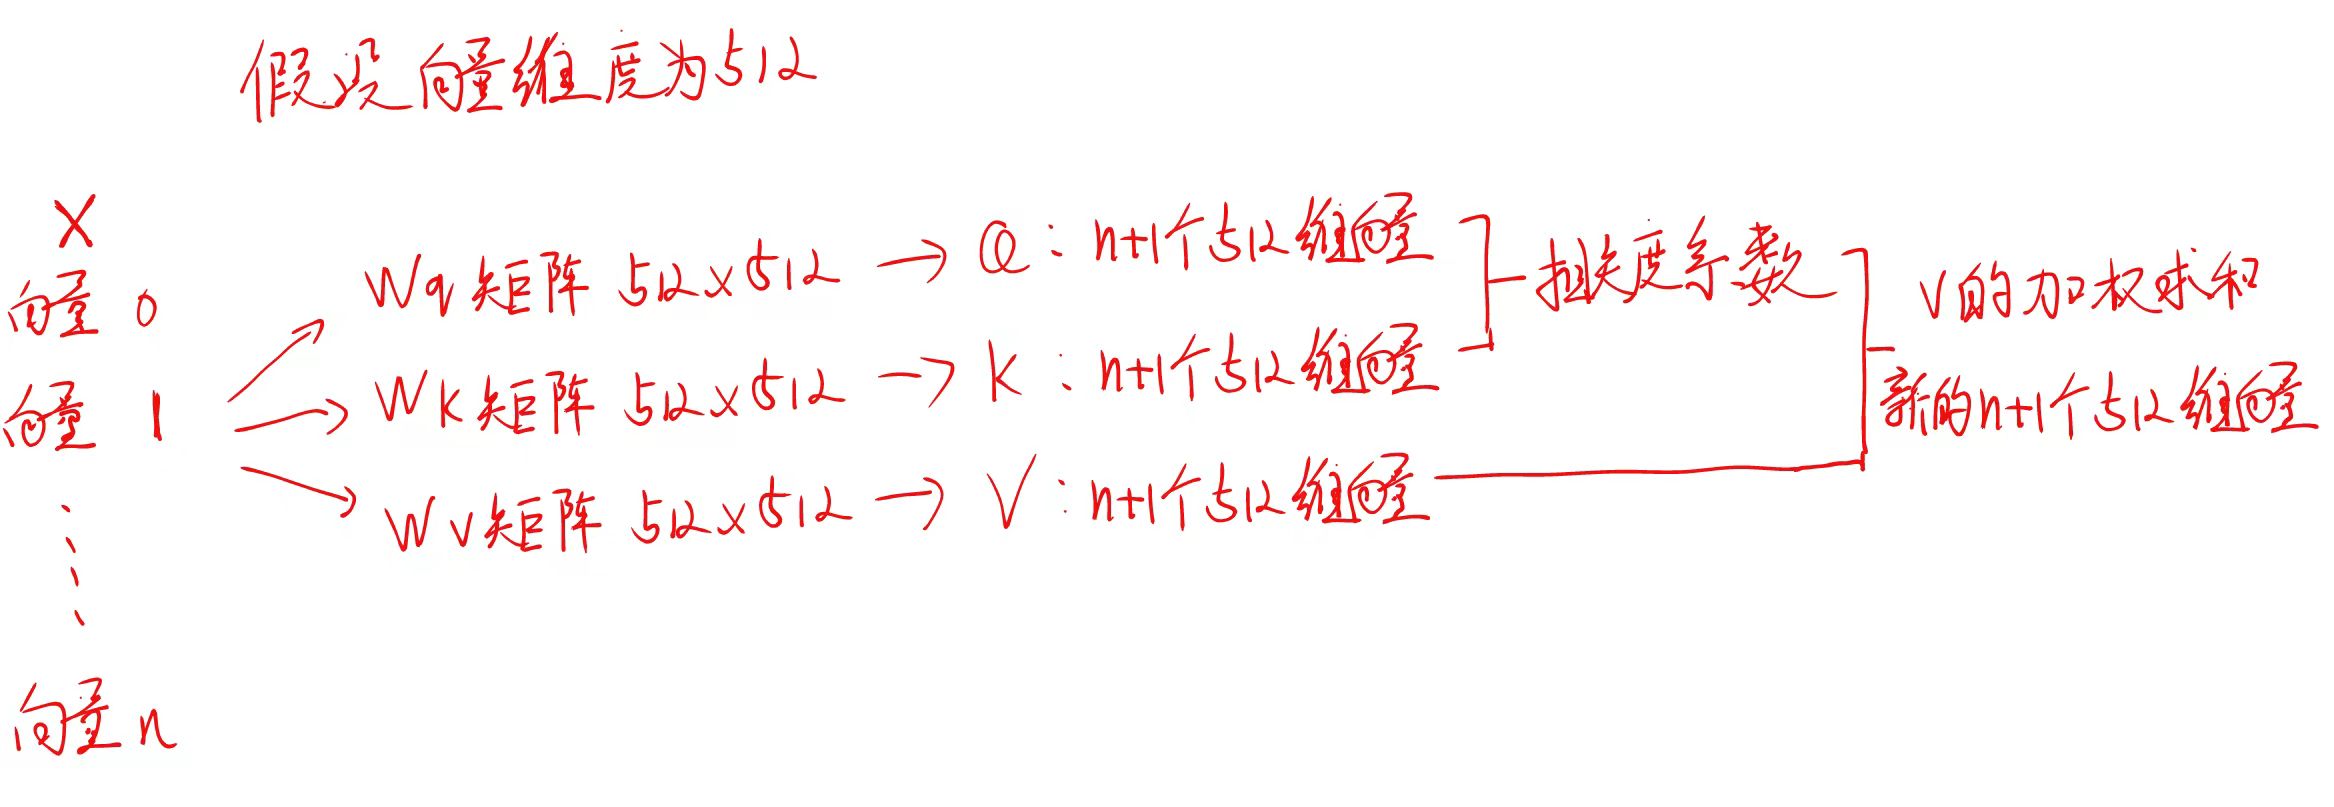 假设向量维度为512
X
向量 0
向量 1
向量 n
Wq矩阵 512×512 → Q: n+1个512维向量
Wk矩阵 512×512 → K: n+1个512维向量
Wv矩阵 512×512 → V: n+1个512维向量
相关度系数
V的加权求和
新的n+1个512维向量